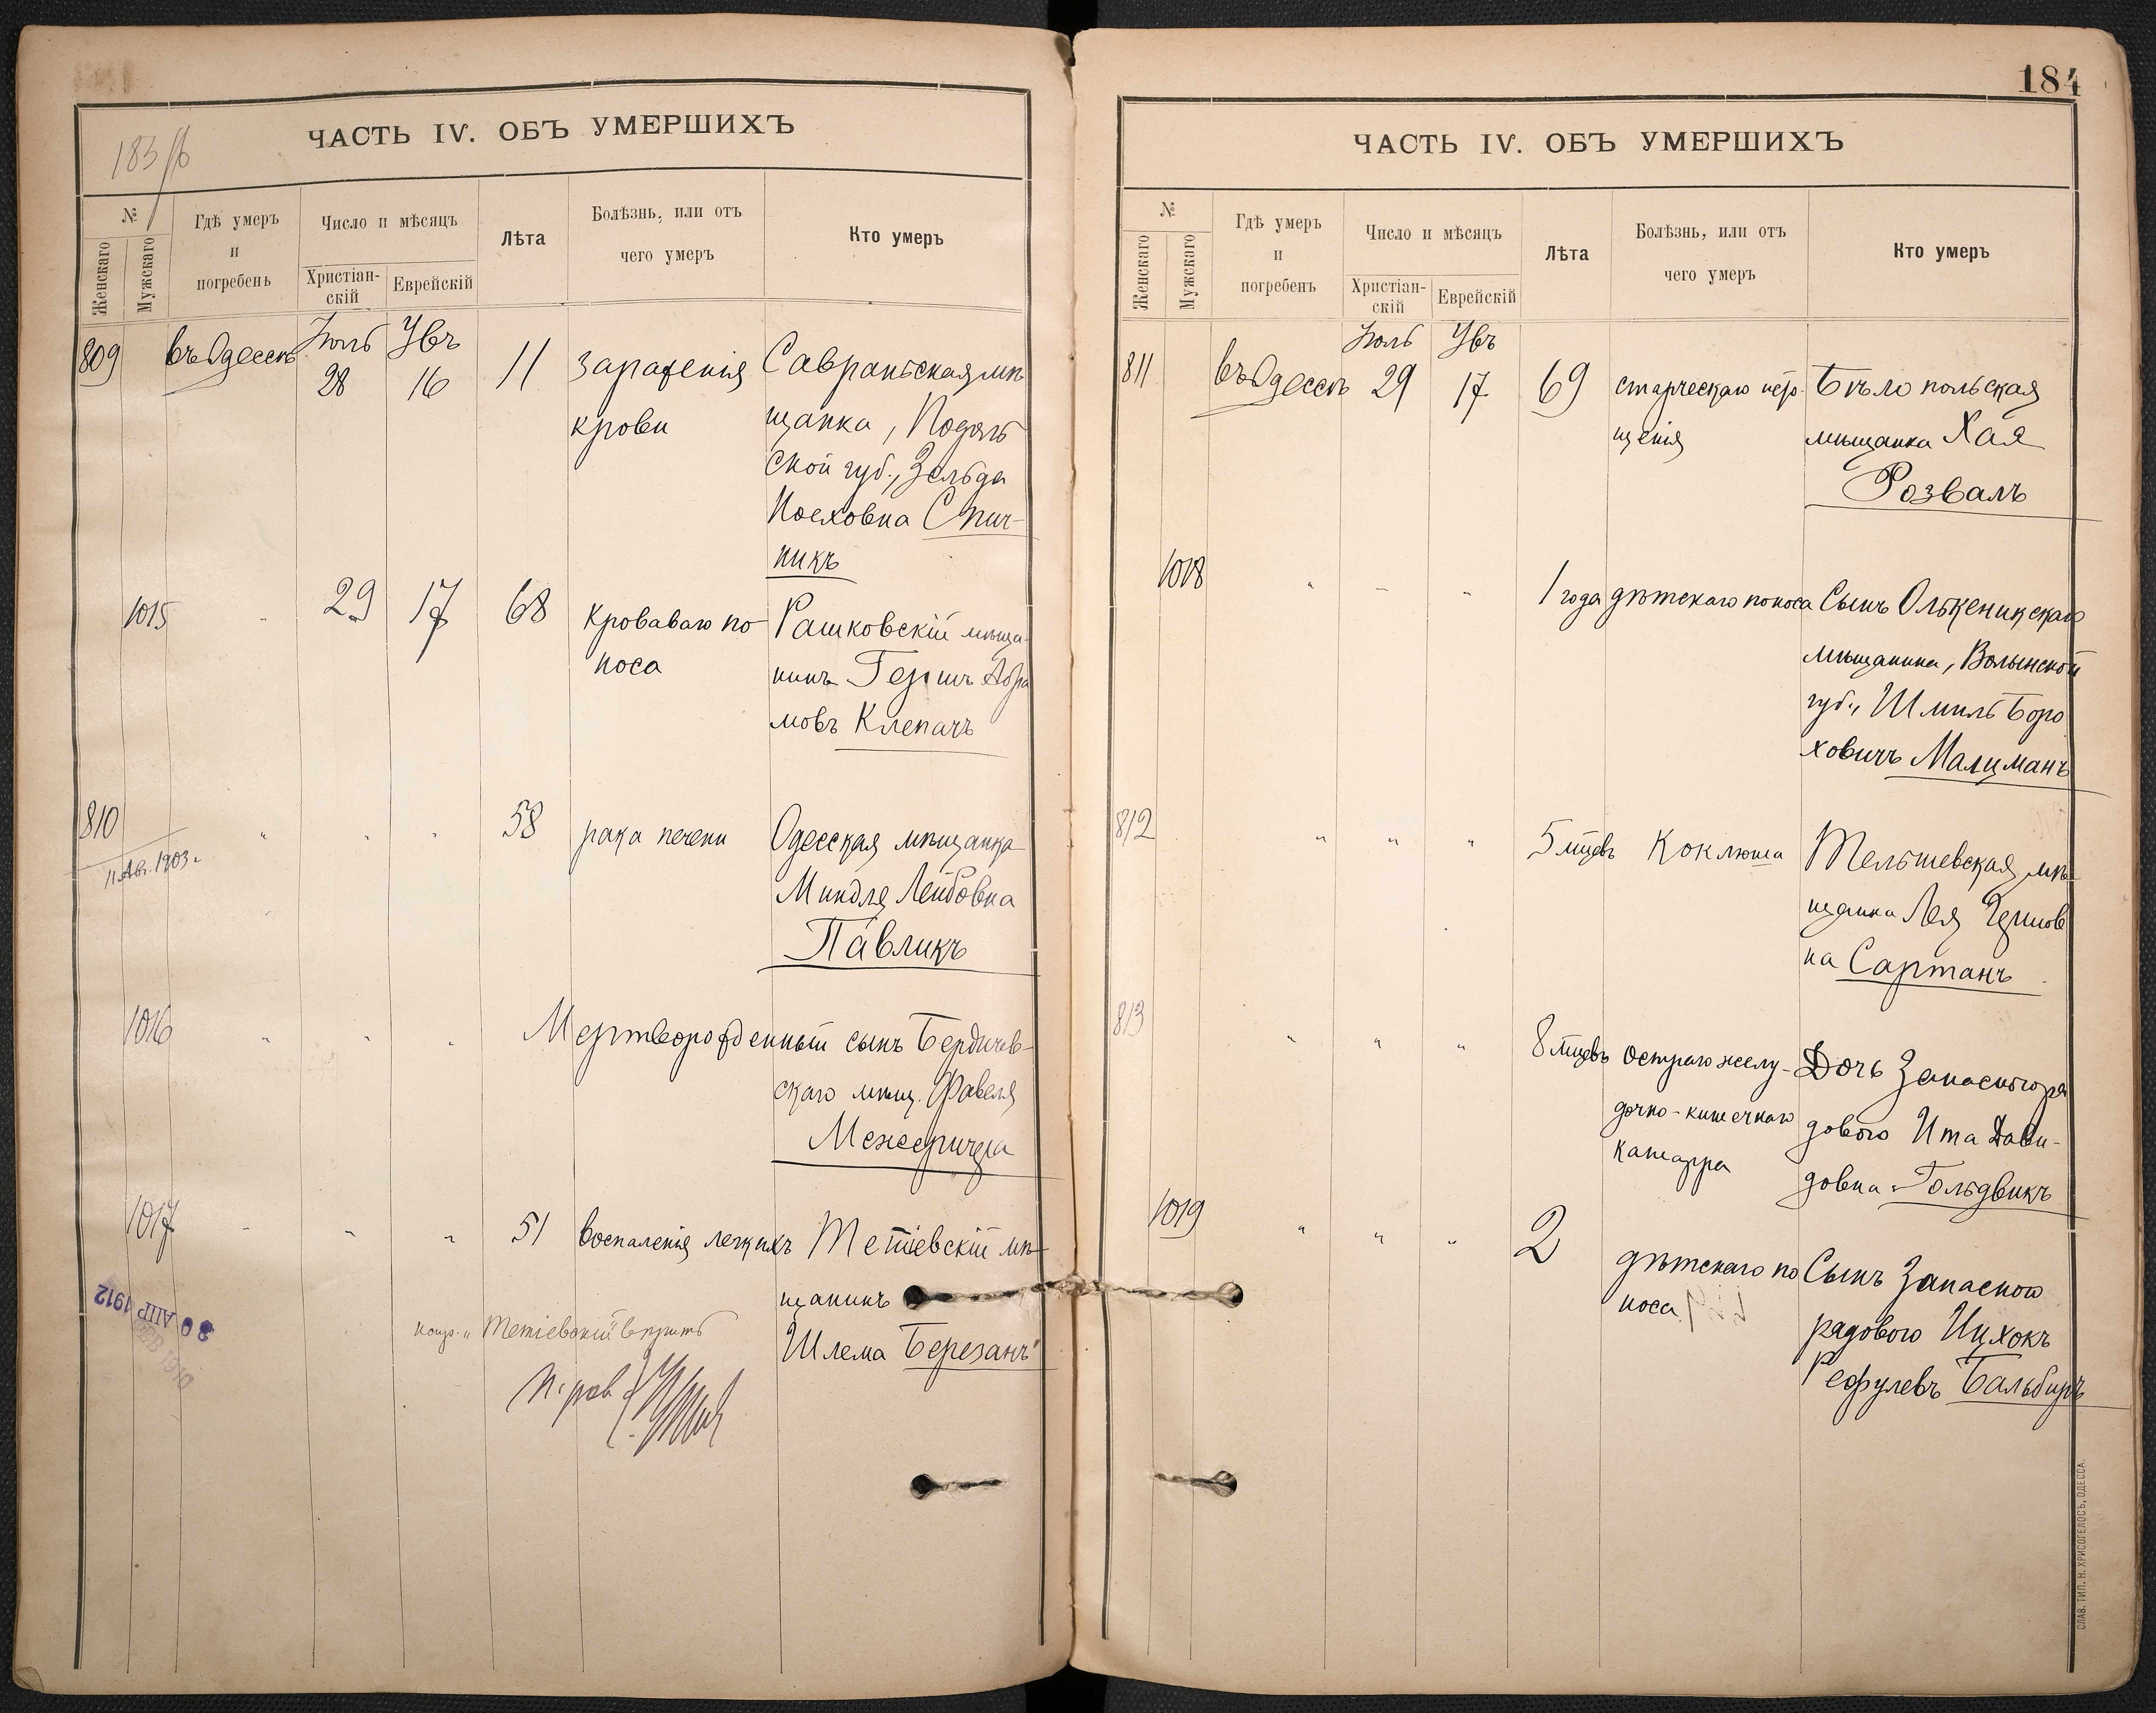 183 об
ЧАСТЬ IV. ОБЪ УМЕРШИХЪ
№
Женскаго
Мужскаго
Гдѣ умеръ
и
погребенъ
Число и мѣсяцъ
Христіан-
скій
Еврейскій
Лѣта
Болѣзнь, или отъ
чего умеръ
Кто умеръ
809 въ Одессѣ Іюль 28 Увъ 16 11
зараженія
крови
Савраньская мѣ
щанка, Подоль
ской губ., Зельда
Іосховна Спич-
никъ
1015 " 29 17 68
Кроваваго по
носа
Рашковскій мѣща
нинъ Гершъ Абра
мовъ Клепачъ
810 " " " 58 рака печени
11 Авг. 1903 г.
Одесская мѣщанка
Миндля Лейбовна
Павликъ
1016 " " "
Мертворожденный сынъ Бердичев-
скаго мѣщ. Фавеля
Межерицера
1017 " " " 51 воспаленія легкихъ
Тетіевскій мѣ
щанинъ
Шлема Березанъ
"Тетіевскій" вѣрить
30 АПР 1912
184
ЧАСТЬ IV. ОБЪ УМЕРШИХЪ
№
Женскаго
Мужскаго
Гдѣ умеръ
и
погребенъ
Число и мѣсяцъ
Христіан-
скій
Еврейскій
Лѣта
Болѣзнь, или отъ
чего умеръ
Кто умеръ
811 въ Одессѣ Іюль 29 Увъ 17 69
старческаго истo-
щенія
Бѣлопольская
мѣщанка Хая
Розвалъ
1018 " " " 1 года дѣтскаго поноса
Сынъ Олькеникскаго
мѣщанина, Волынской
губ., Шмиль Боро
ховичъ Малцманъ
812 " " " 5 мцевъ Коклюша
Тельшевская мѣ
щанка Лея
на Сартанъ
813 " " " 8 мцевъ
остраго желу-
дочно-кишечнаго
катарра
Дочь Запаснаго ря
доваго Ита Дави-
довна Гольдвикъ
1019 " " " 2
дѣтскаго по
носа
Сынъ Запаснаго
рядового Ицхокъ
Рефулевъ Бальбиръ
СЛАВ. ТИП. Н. ХРИСОГЕЛОСЪ, ОДЕССА.